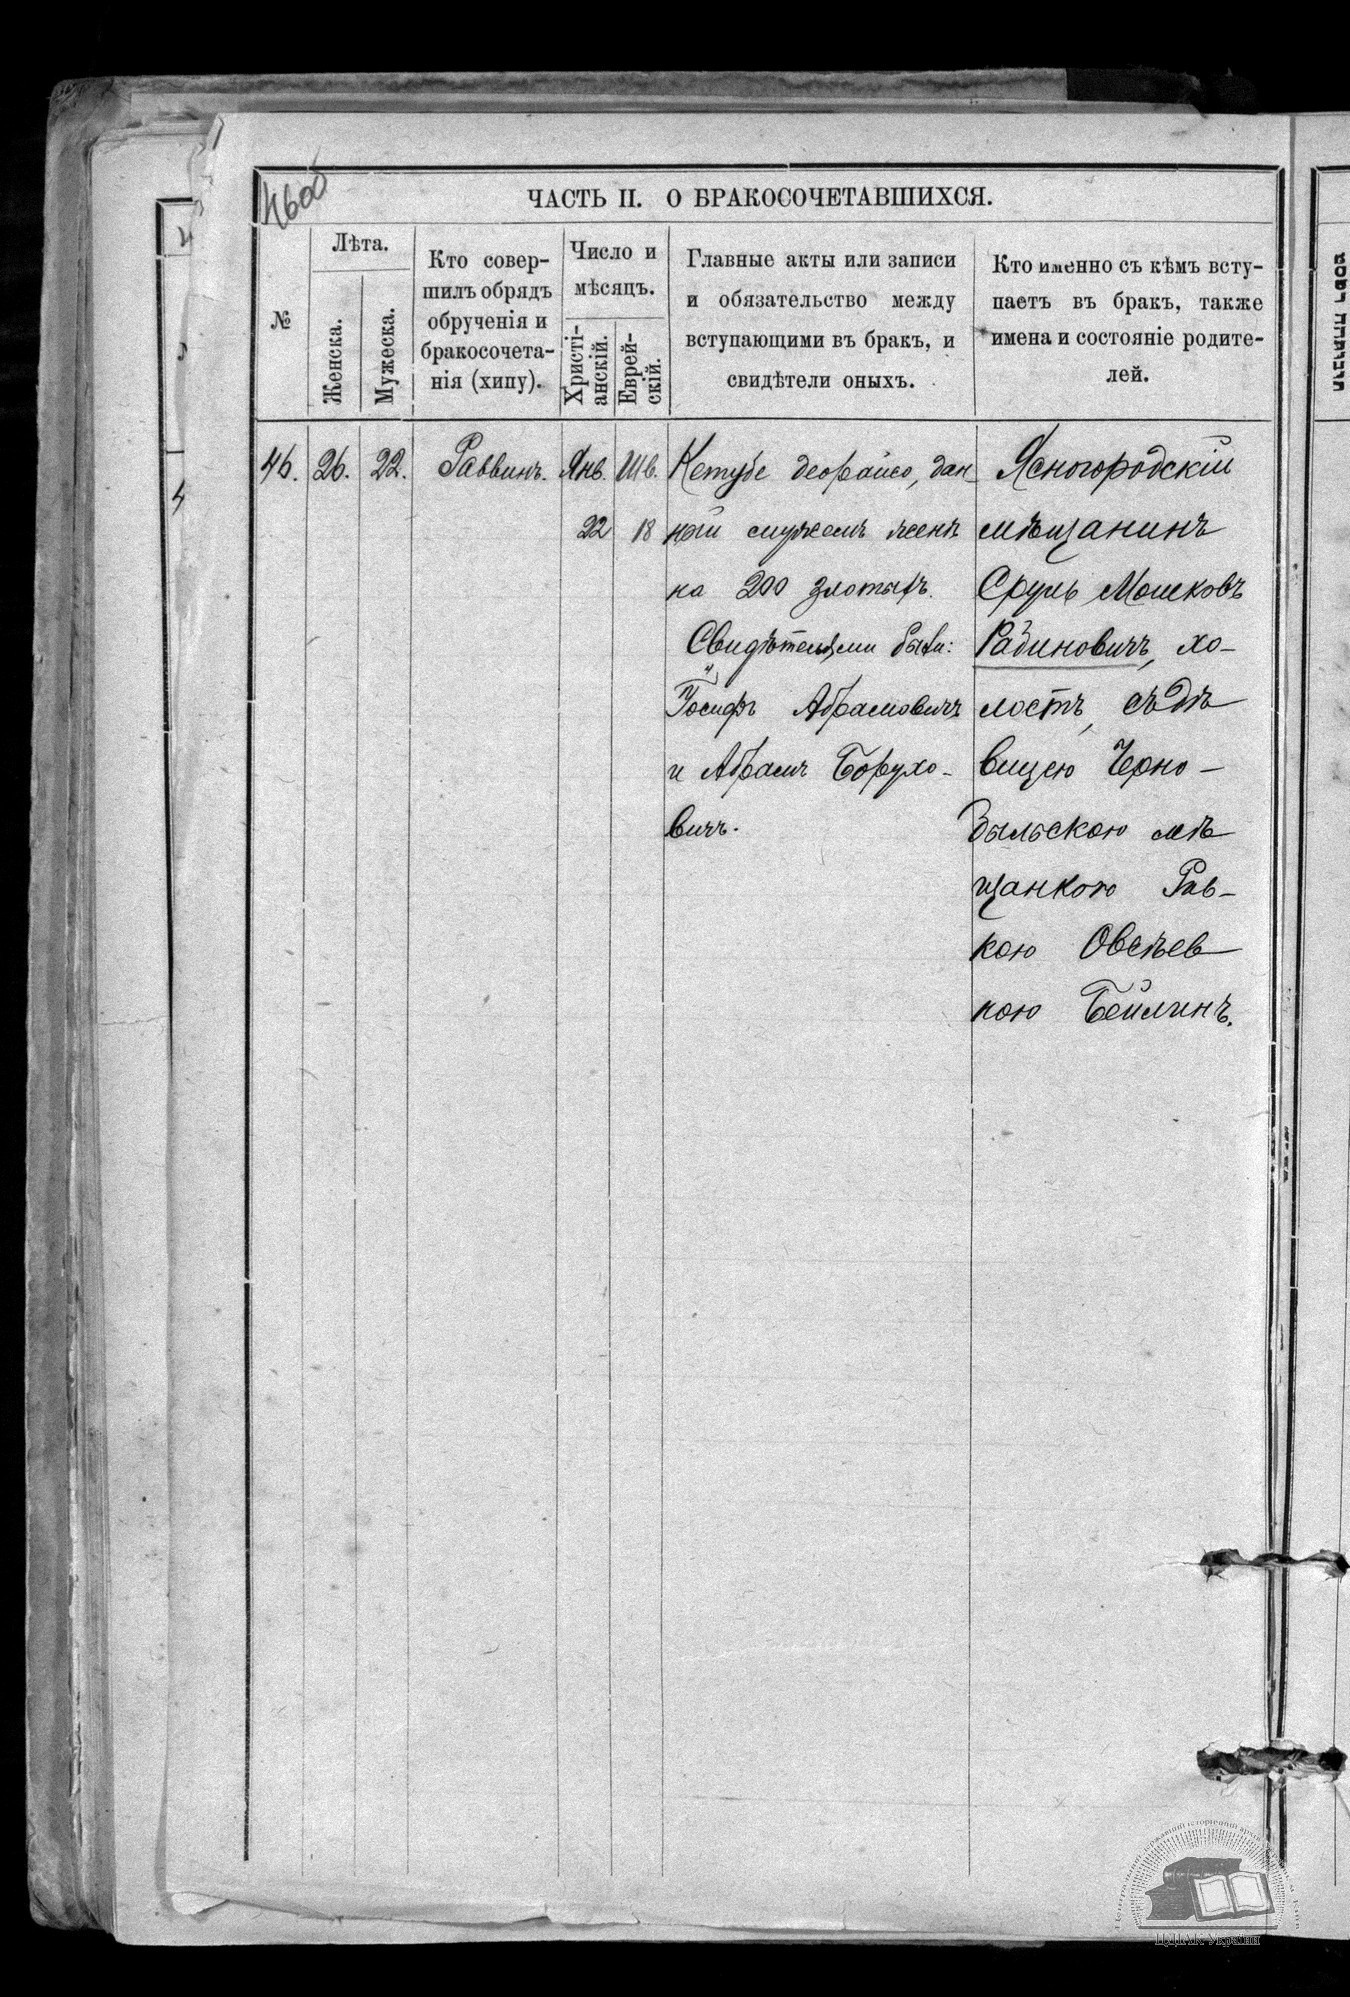 4600
ЧАСТЬ II. О БРАКОСОЧЕТАВШИХСЯ.
№
Лѣта.
Женска.
Мужеска.
Кто совер-
шилъ обрядъ
обрученія и
бракосочета-
нія (хипу).
Число и
мѣсяцъ.
Христі-
анскій.
Еврей-
скій.
Главные акты или записи
и обязательство между
вступающими въ бракъ, и
свидѣтели оныхъ.
Кто именно съ кѣмъ всту-
паетъ въ бракъ, также
имена и состояніе родите-
лей.
46. 26. 22. Раввинъ. Янв. Шв.
22 18
Кетубе деорайсо, дан-
ной мужемъ женѣ
на 200 злотыхъ.
Свидѣтелями были:
Іосифъ Абрамовичъ
и Абрамъ Борухо-
вичъ.
Ясногородскій
мѣщанинъ
Сруль Мошковъ
Рабиновичъ, хо-
лостъ, съ дѣ
вицею Черно-
быльскою мѣ
щанкою Рив-
кою Овсѣев
ною Бейлинъ.
ЦДІАК України